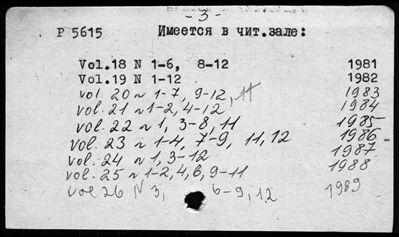 - 3 -
P 5615 Имеется в чит.зале:
Vol.18 N 1-6, 8-12 1981
Vol.19 N 1-12 1982
vol. 20 N 1-7, 9-12, 11 1983
vol. 21 N 1-2, 4-12 1984
vol. 22 N 1, 3-8, 11 1985
vol. 23 N 1-4, 7-9, 11, 12 1986
vol. 24 N 1, 3-12 1987
vol. 25 N 1-2, 4, 6, 9-11 1988
vol 26 N 3, 6-9, 12 1989